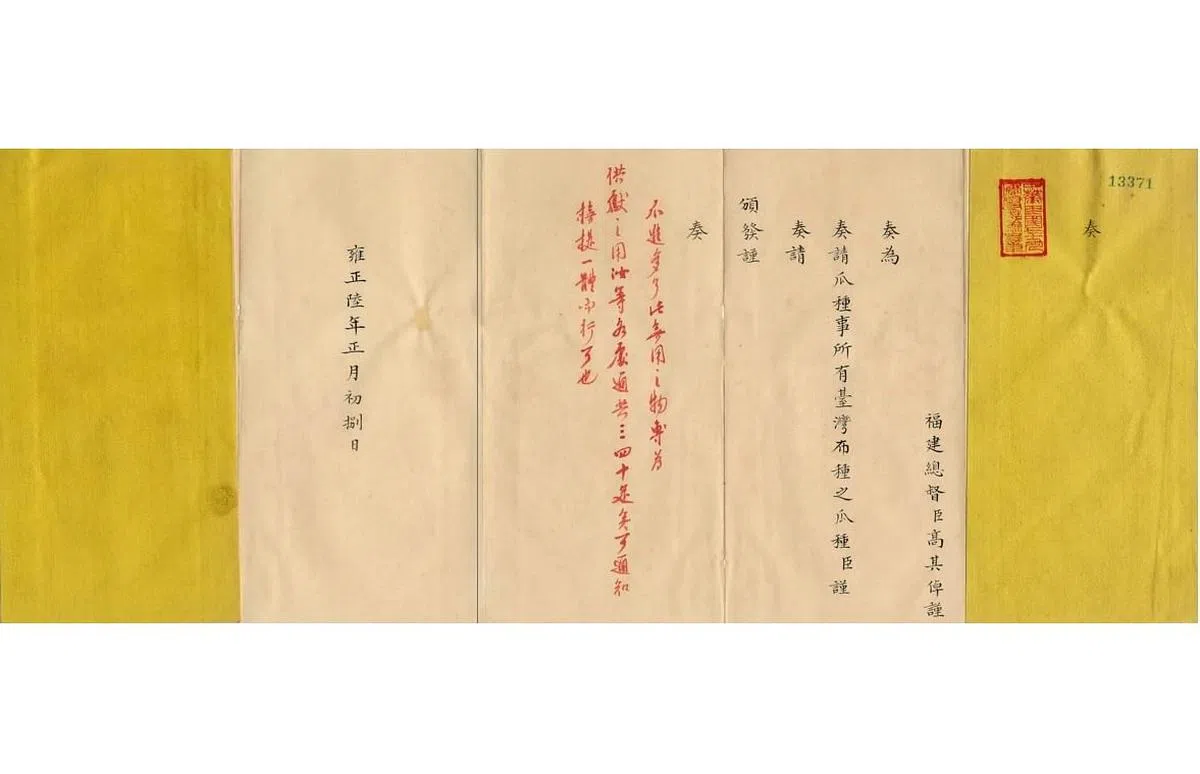 13371
奏
福建總督臣高其倬謹
奏為
奏請瓜種事所有臺灣布種之瓜種臣謹
奏請
頒發謹
奏
不進多了此無用之物專為
供獻之用汝等各處通共三四十足矣可通知
提一體行可也
雍正陸年正月初捌日